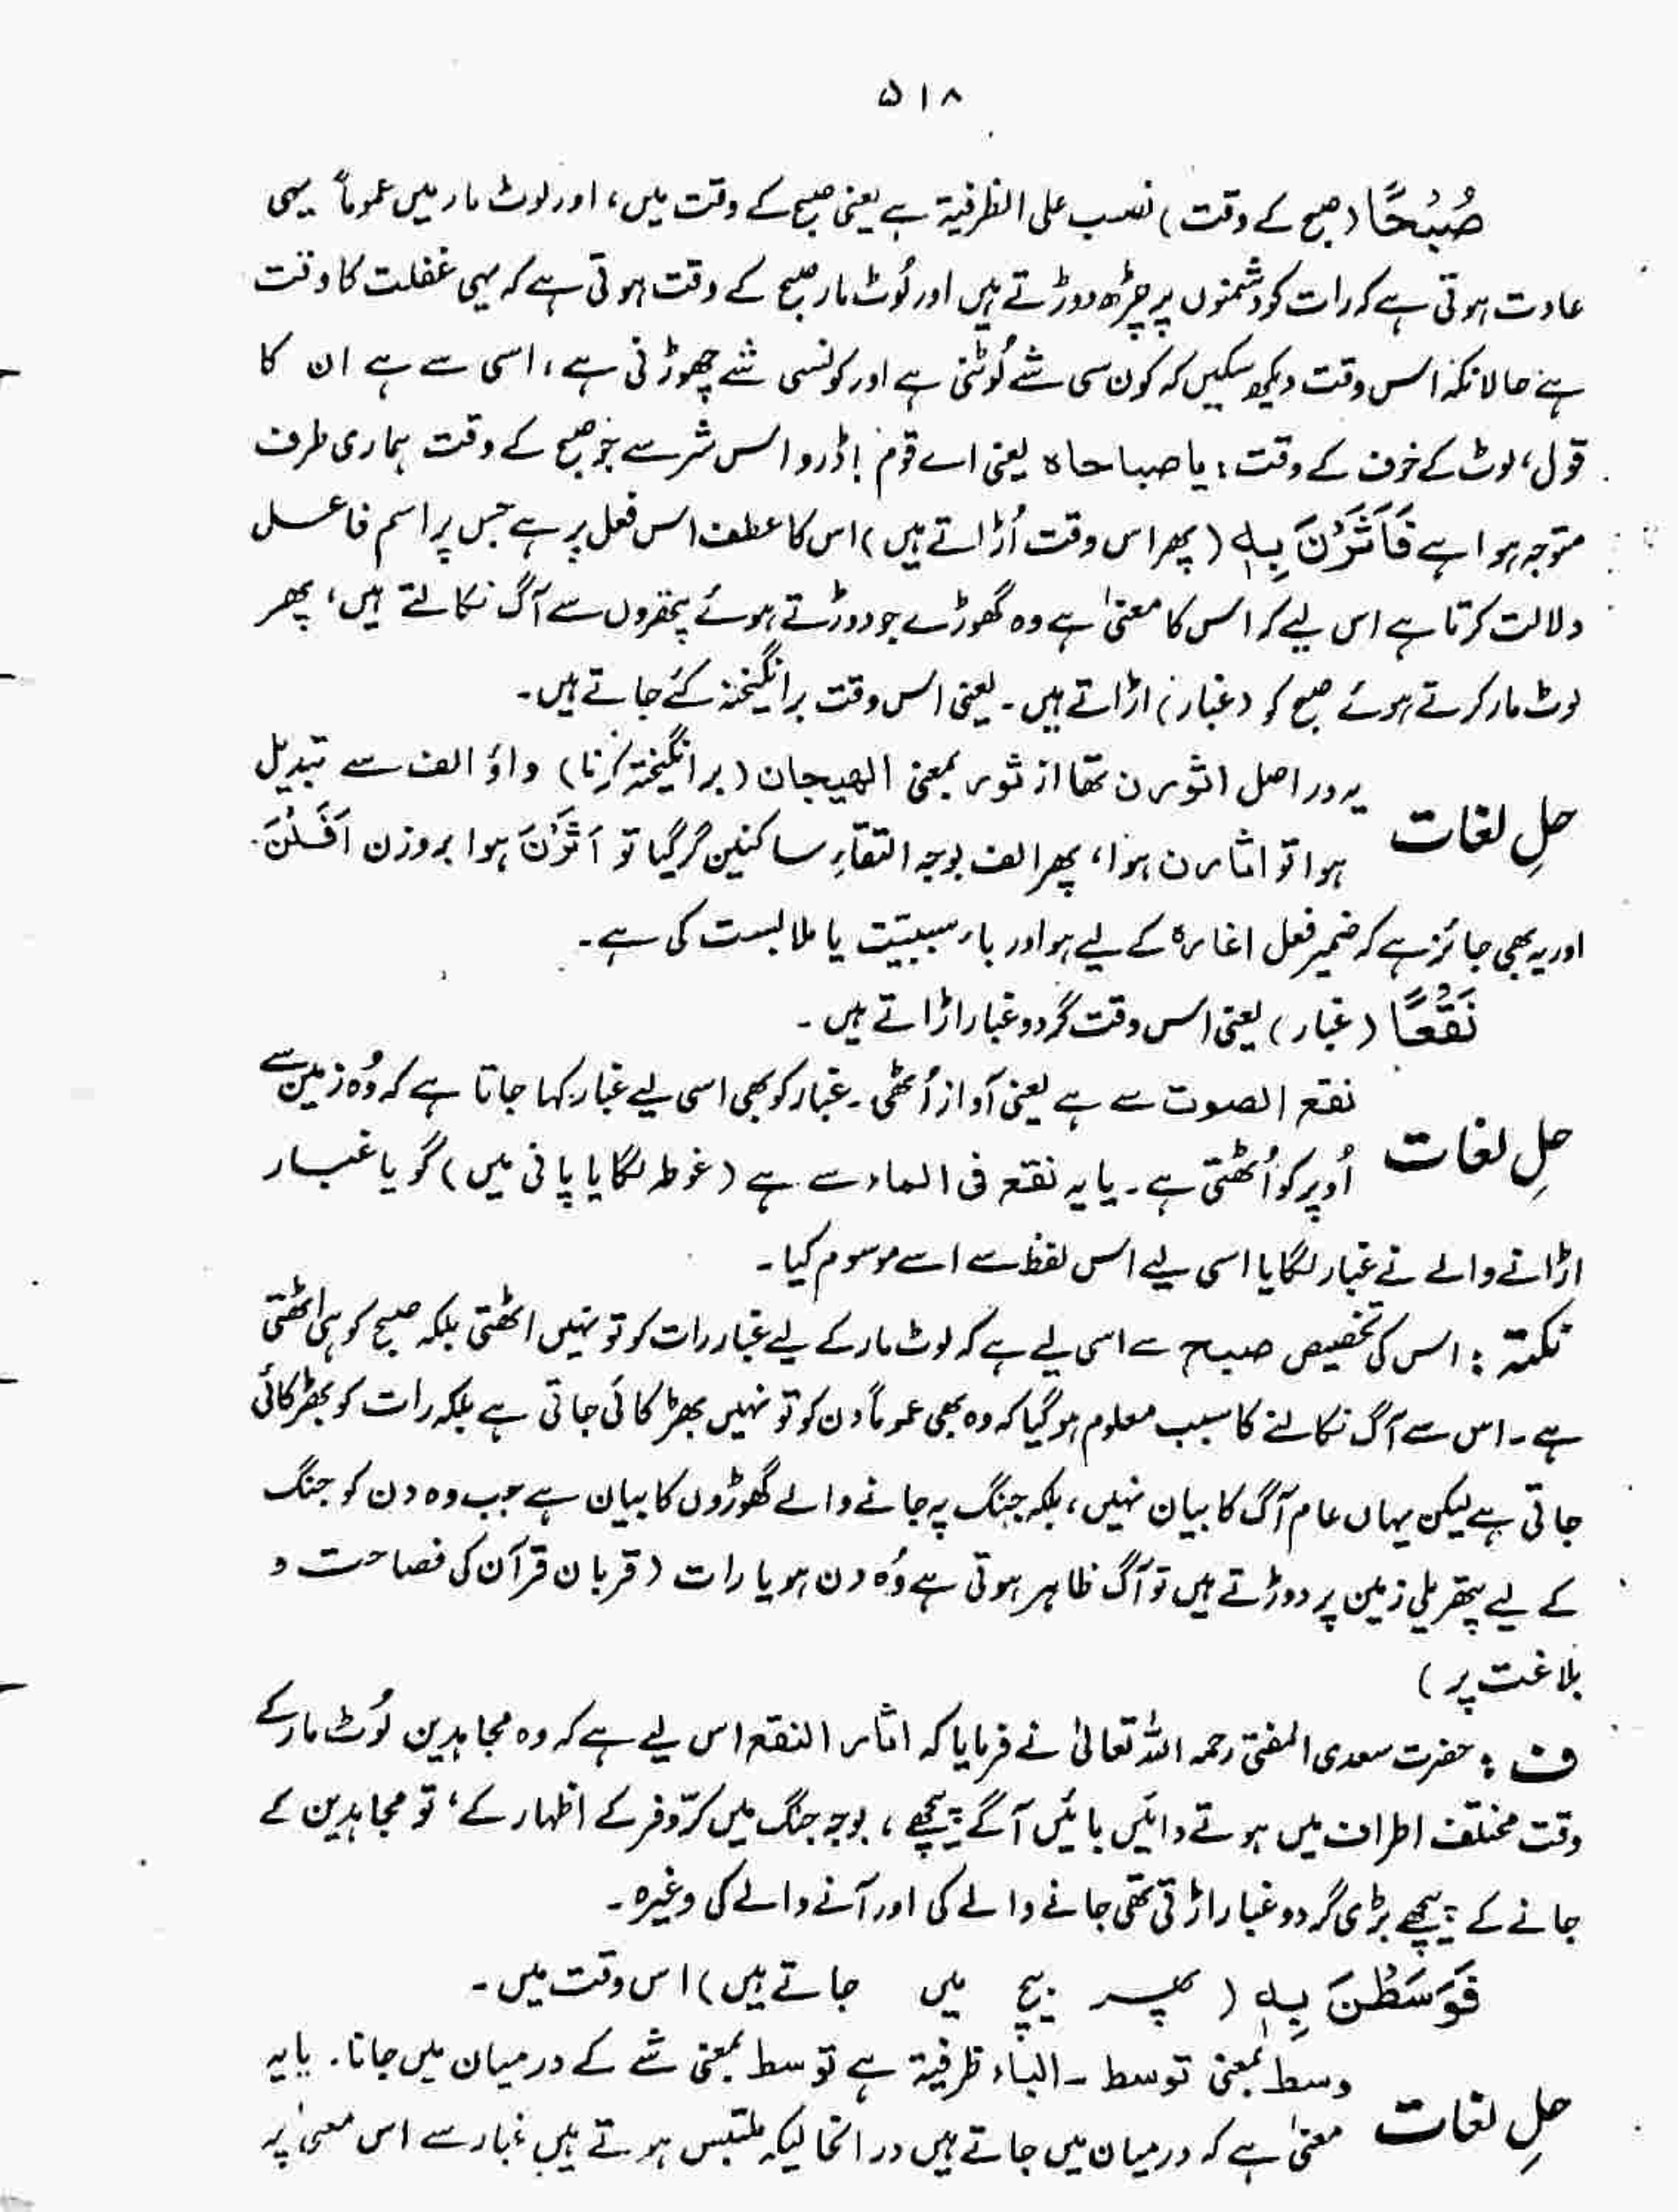 ۵۱۸
صُبْحًا (صبح کے وقت) نصب علی الظرفیۃ ہے یعنی صبح کے وقت میں، اور لوٹ مار میں عموماً یہی
عادت ہوتی ہے کہ رات کو دشمنوں پر چڑھ دوڑتے ہیں اور لُوٹ مار صبح کے وقت ہوتی ہے کہ یہی غفلت کا وقت
ہے حالانکہ اس وقت دیکھ سکیں کہ کون سی شے لُوٹنی ہے اور کونسی شے چھوڑنی ہے، اسی سے ہے ان کا
قول، لوٹ کے خوف کے وقت: یا صباحاہ یعنی اے قوم! ڈرو اس شر سے جو صبح کے وقت ہماری طرف
متوجہ ہوا ہے فَاَثَرْنَ بِہٖ (پھر اس وقت اُڑاتے ہیں) اس کا عطف اس فعل پر ہے جس پر اسم فاعل
دلالت کرتا ہے اس لیے کہ اس کا معنیٰ ہے وہ گھوڑے جو دوڑتے ہوئے پتھروں سے آگ نکالتے ہیں، پھر
لوٹ مار کرتے ہوئے صبح کو (غبار) اڑاتے ہیں۔ یعنی اس وقت برانگیختہ کئے جاتے ہیں۔
حلِ لغات یہ دراصل اثورن تھا از ثور بمعنی الھیجان (برانگیختہ کرنا) واؤ الف سے تبدیل
ہوا تو اثارن ہوا، پھر الف بوجہ التقاءِ ساکنین گر گیا تو اَثَرْنَ ہوا بروزن اَفَلْنَ۔
اور یہ بھی جائز ہے کہ ضمیر فعل اغارہ کے لیے ہو اور باء سببیّت یا ملابست کی ہے۔
نَقْعًا (غبار) یعنی اس وقت گرد و غبار اڑاتے ہیں۔
حلِ لغات نقع الصوت سے ہے یعنی آواز اُٹھی۔ غبار کو بھی اسی لیے غبار کہا جاتا ہے کہ وُہ زمین سے
اُوپر کو اُٹھتی ہے۔ یا یہ نقع فی الماء سے ہے (غوطہ لگایا پانی میں) گویا غبار
اڑانے والے نے غبار لگایا اسی لیے اس لفظ سے اسے موسوم کیا۔
نکتہ: اس کی تخصیص صباح سے اسی لیے ہے کہ لوٹ مار کے لیے غبار رات کو تو نہیں اٹھتی بلکہ صبح کو ہی اٹھتی
ہے۔ اس سے آگ نکالنے کا سبب معلوم ہو گیا کہ وہ بھی عموماً دن کو تو نہیں بھڑکائی جاتی ہے بلکہ رات کو بھڑکائی
جاتی ہے لیکن یہاں عام آگ کا بیان نہیں، بلکہ جنگ پہ جانے والے گھوڑوں کا بیان ہے جب وہ دن کو جنگ
کے لیے پتھریلی زمین پر دوڑتے ہیں تو آگ ظاہر ہوتی ہے وُہ دن ہو یا رات (قربان قرآن کی فصاحت و
بلاغت پر)
ف: حضرت سعدی المفتی رحمہ اللہ تعالیٰ نے فرمایا کہ اثار النقع اس لیے ہے کہ وہ مجاہدین لُوٹ مار کے
وقت مختلف اطراف میں ہوتے دائیں بائیں آگے پیچھے، بوجہ جنگ میں کرّ و فر کے اظہار کے، تو مجاہدین کے
جانے کے پیچھے بڑی گرد و غبار اڑتی تھی جانے والے کی اور آنے والے کی وغیرہ۔
فَوَسَطْنَ بِہٖ (پھر بیچ میں جاتے ہیں) اس وقت میں۔
حلِ لغات وسط بمعنی توسط۔ الباء ظرفیۃ ہے توسط بمعنی شے کے درمیان میں جانا۔ یا یہ
معنیٰ ہے کہ درمیان میں جاتے ہیں درانحالیکہ ملتبس ہوتے ہیں غبار سے اس معنیٰ پر